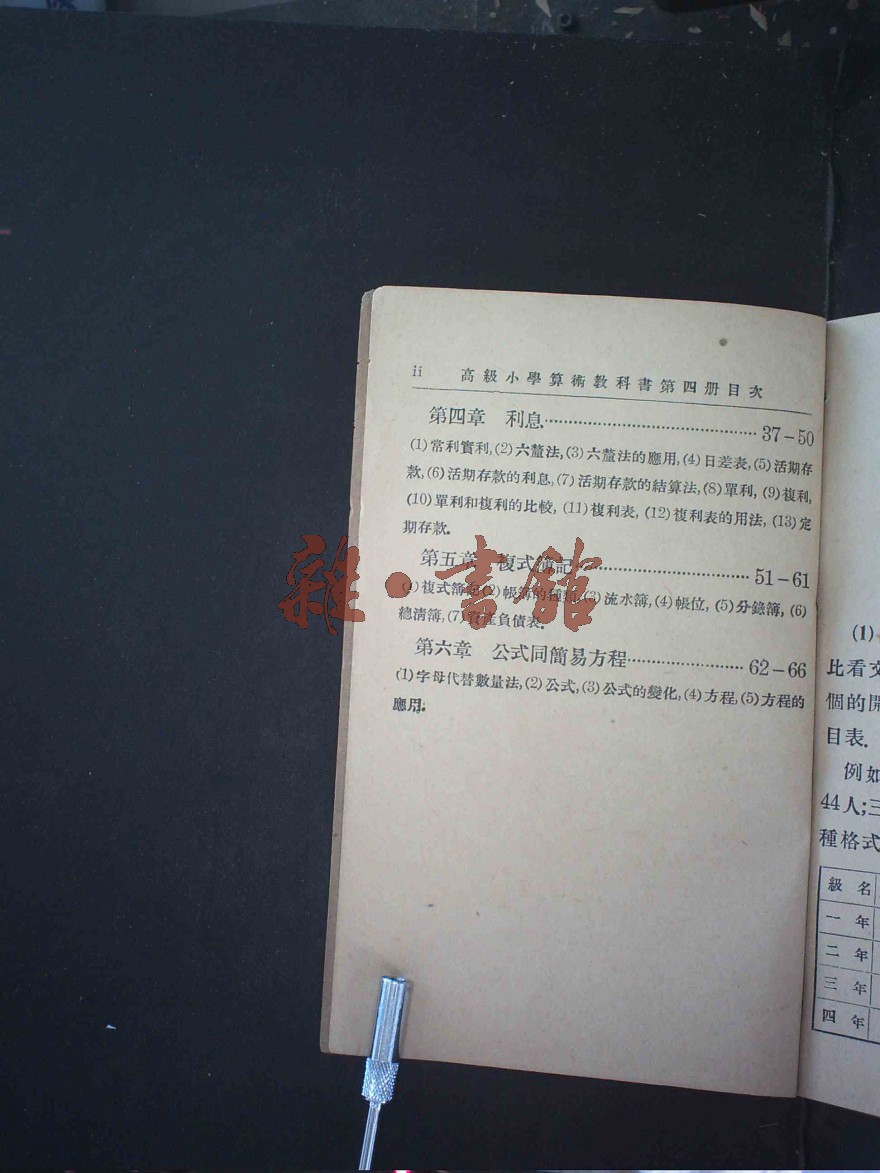 ii 高級小學算術教科書第四册目次
第四章 利息 37-50
(1)常利實利,(2)六釐法,(3)六釐法的應用,(4)日差表,(5)活期存
款,(6)活期存款的利息,(7)活期存款的結算法,(8)單利,(9)複利,
(10)單利和複利的比較,(11)複利表,(12)複利表的用法,(13)定
期存款.
第五章 複式簿記 51-61
(1)複式簿記(2)帳簿的種類,(3)流水簿,(4)帳位,(5)分錄簿,(6)
總淸簿,(7)資產負債表.
第六章 公式同簡易方程 62-66
(1)字母代替數量法,(2)公式,(3)公式的變化,(4)方程,(5)方程的
應用.
雜·書館
(1)
比看文
個的開
目表.
例如
44人;三
種格式
級名
一年
二年
三年
四年